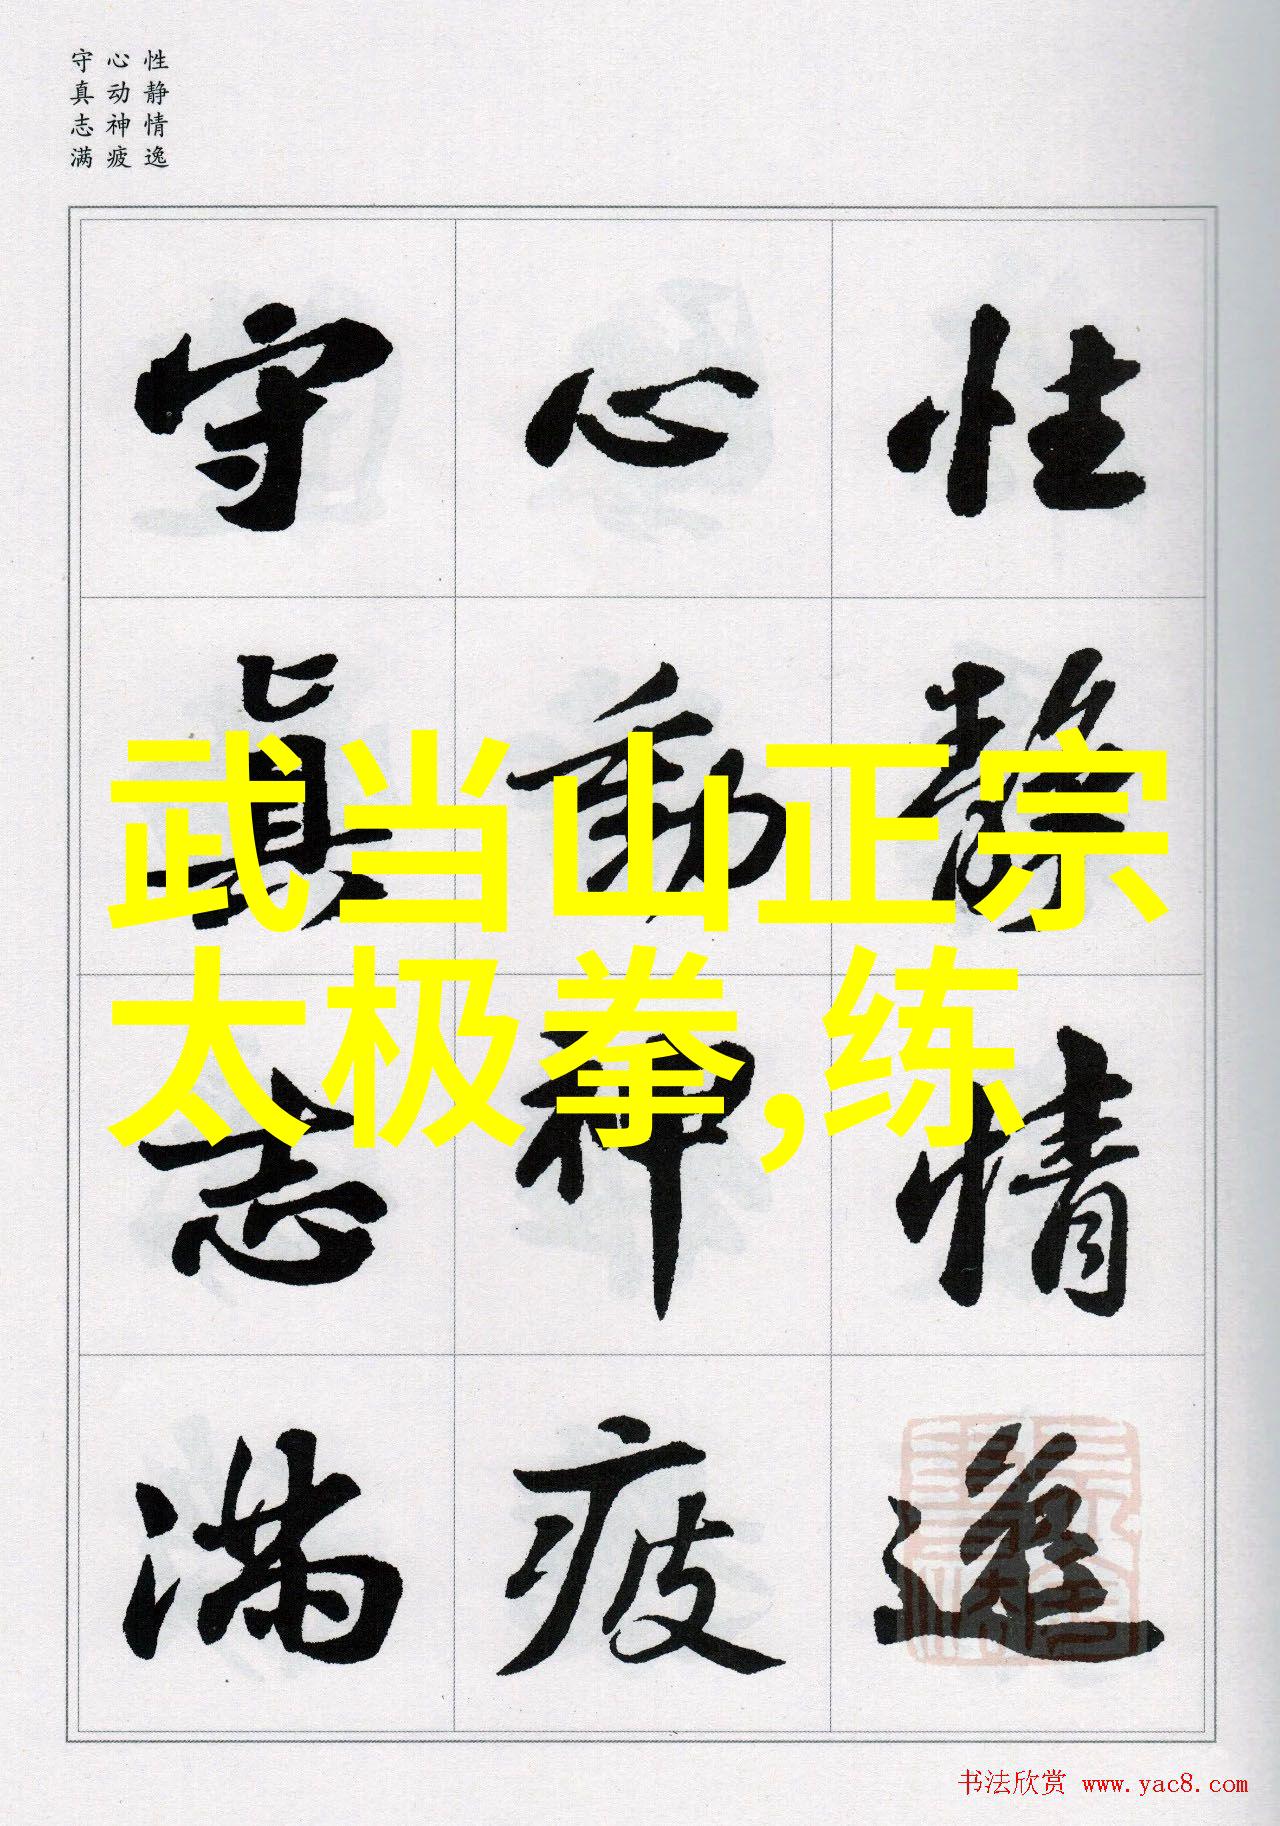 性静情逸
心动神疲
守真志满
性靜情逸
心動神疲
守真志满
武当山正宗
太极拳,练
书法欣赏 www.yac8.com